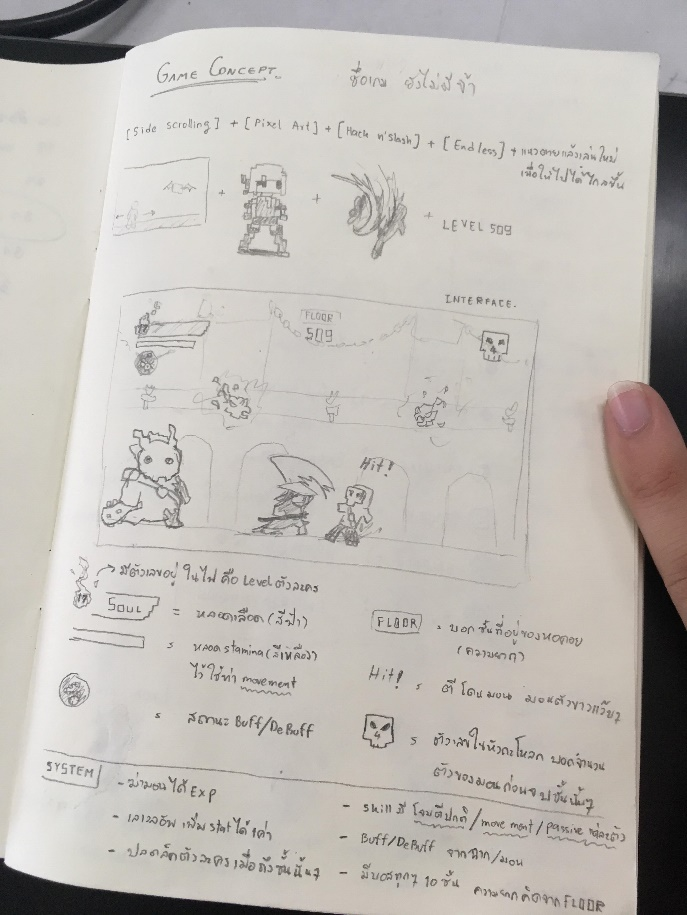 GAME CONCEPT
ชื่อเกม ยังไม่มีจ้า
[Side scrolling] + [Pixel Art] + [Hack n'slash] + [Endless] + แนวตายแล้วเล่นใหม่
เพื่อให้ไปได้ไกลขึ้น
+ + + LEVEL 509
INTERFACE.
FLOOR
509
Hit!
มีตัวเลขอยู่ในไฟ คือ Level ตัวละคร
SOUL = หลอดเลือด (สีฟ้า)
หลอด stamina (สีเหลือง)
ไว้ใช้ท่า movement
สถานะ Buff/DeBuff
FLOOR = บอกชั้นที่อยู่ของหอคอย
(ความยาก)
Hit! = ตีโดนมอน มอนตัวขาวแว๊บๆ
4 = ตัวเลขในหัวกะโหลก บอกจำนวน
ตัวของมอนก่อนจบชั้นนั้นๆ
SYSTEM
- ฆ่ามอนได้ EXP
- เลเวลอัพ เพิ่ม stat ได้
- ปลดล็คตัวละครเมื่อถึงชั้นนั้นๆ
- skill มี โจมตีปกติ / movement / passive แต่ละตัว
- Buff/DeBuff จากฉาก/มอน
- มีบอสทุกๆ 10 ชั้น ความยากคิดจาก FLOOR